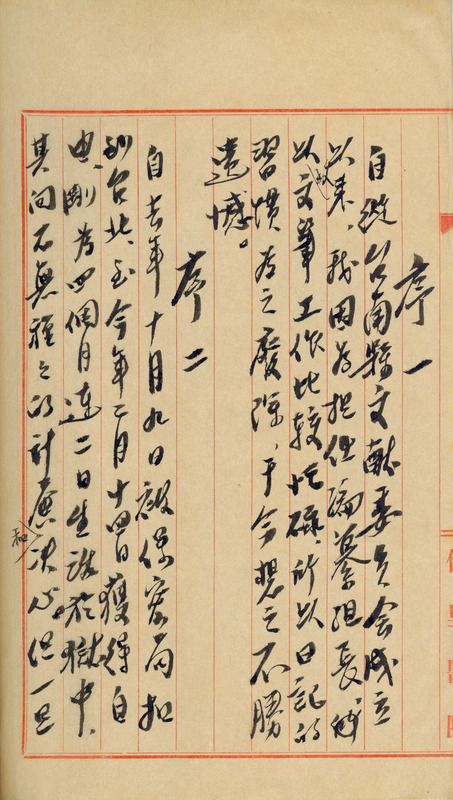 序一
自從台南縣文獻委員会成立
以来，我因為担任編纂組長，我
以文筆工作比較忙碌，所以日記的
習慣為之廢除，于今想之不勝
遺憾。
序二
自去年十月九日被保密局扣
到台北，至今年二月十四日獲得自
由，剛為四個月連二日生活於獄中，
其间不無種々的計慮和決心，但一旦